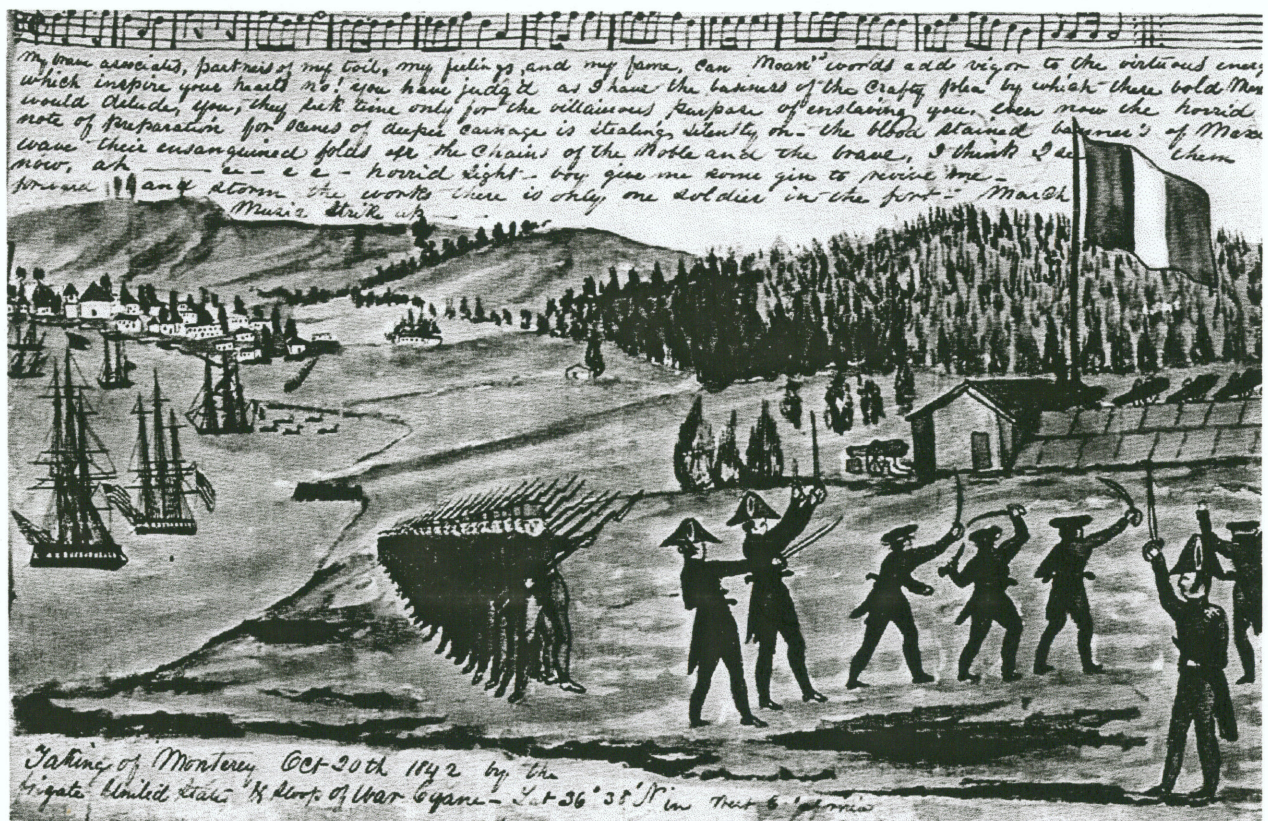 My brave associates, partners of my toil, my feelings and my fame, can words add vigor to the virtuous energ
which inspire your hearts no! you have judg'd as I have the of the crafty plea by which these bold
would delude, you, they seek time only for the villainous purpose of enslaving you, even now the horrid
note of preparation for scenes of deeper carnage is stealing silently on - the blood stained banner's of
wave their ensanguined folds o'er the chains of the noble and the brave, I think I see them
now, ah — e e - e e - horrid sight - boy give me some gin to revive me -
forward and storm the works there is only one soldier in the fort - March
Music Strike up
Taking of Monterey Oct 20th 1842 by the
frigate United States & Sloop of War Cyane - Lat 36° 38' N in